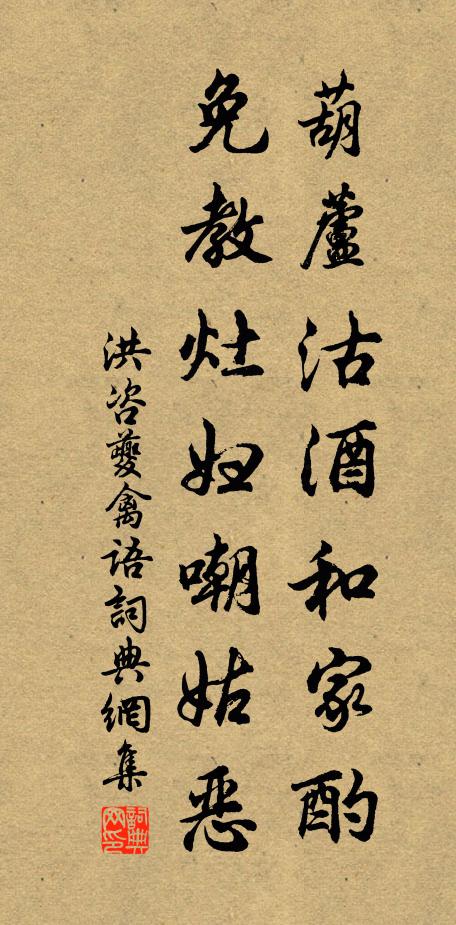 葫蘆沽酒和家酌
免教灶妇嘲姑恶
洪咨夔禽语詞典網集
詞典网印